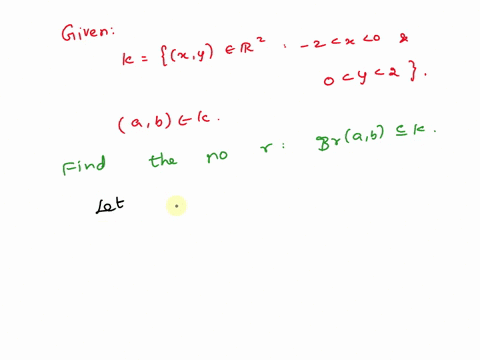 Given:
k = {(x,y) ∈ ℝ² : -2 < x < 0 &
0 < y < 2}.
(a, b) ∈ k.
Find the no r: Br(a,b) ⊆ k.
Let